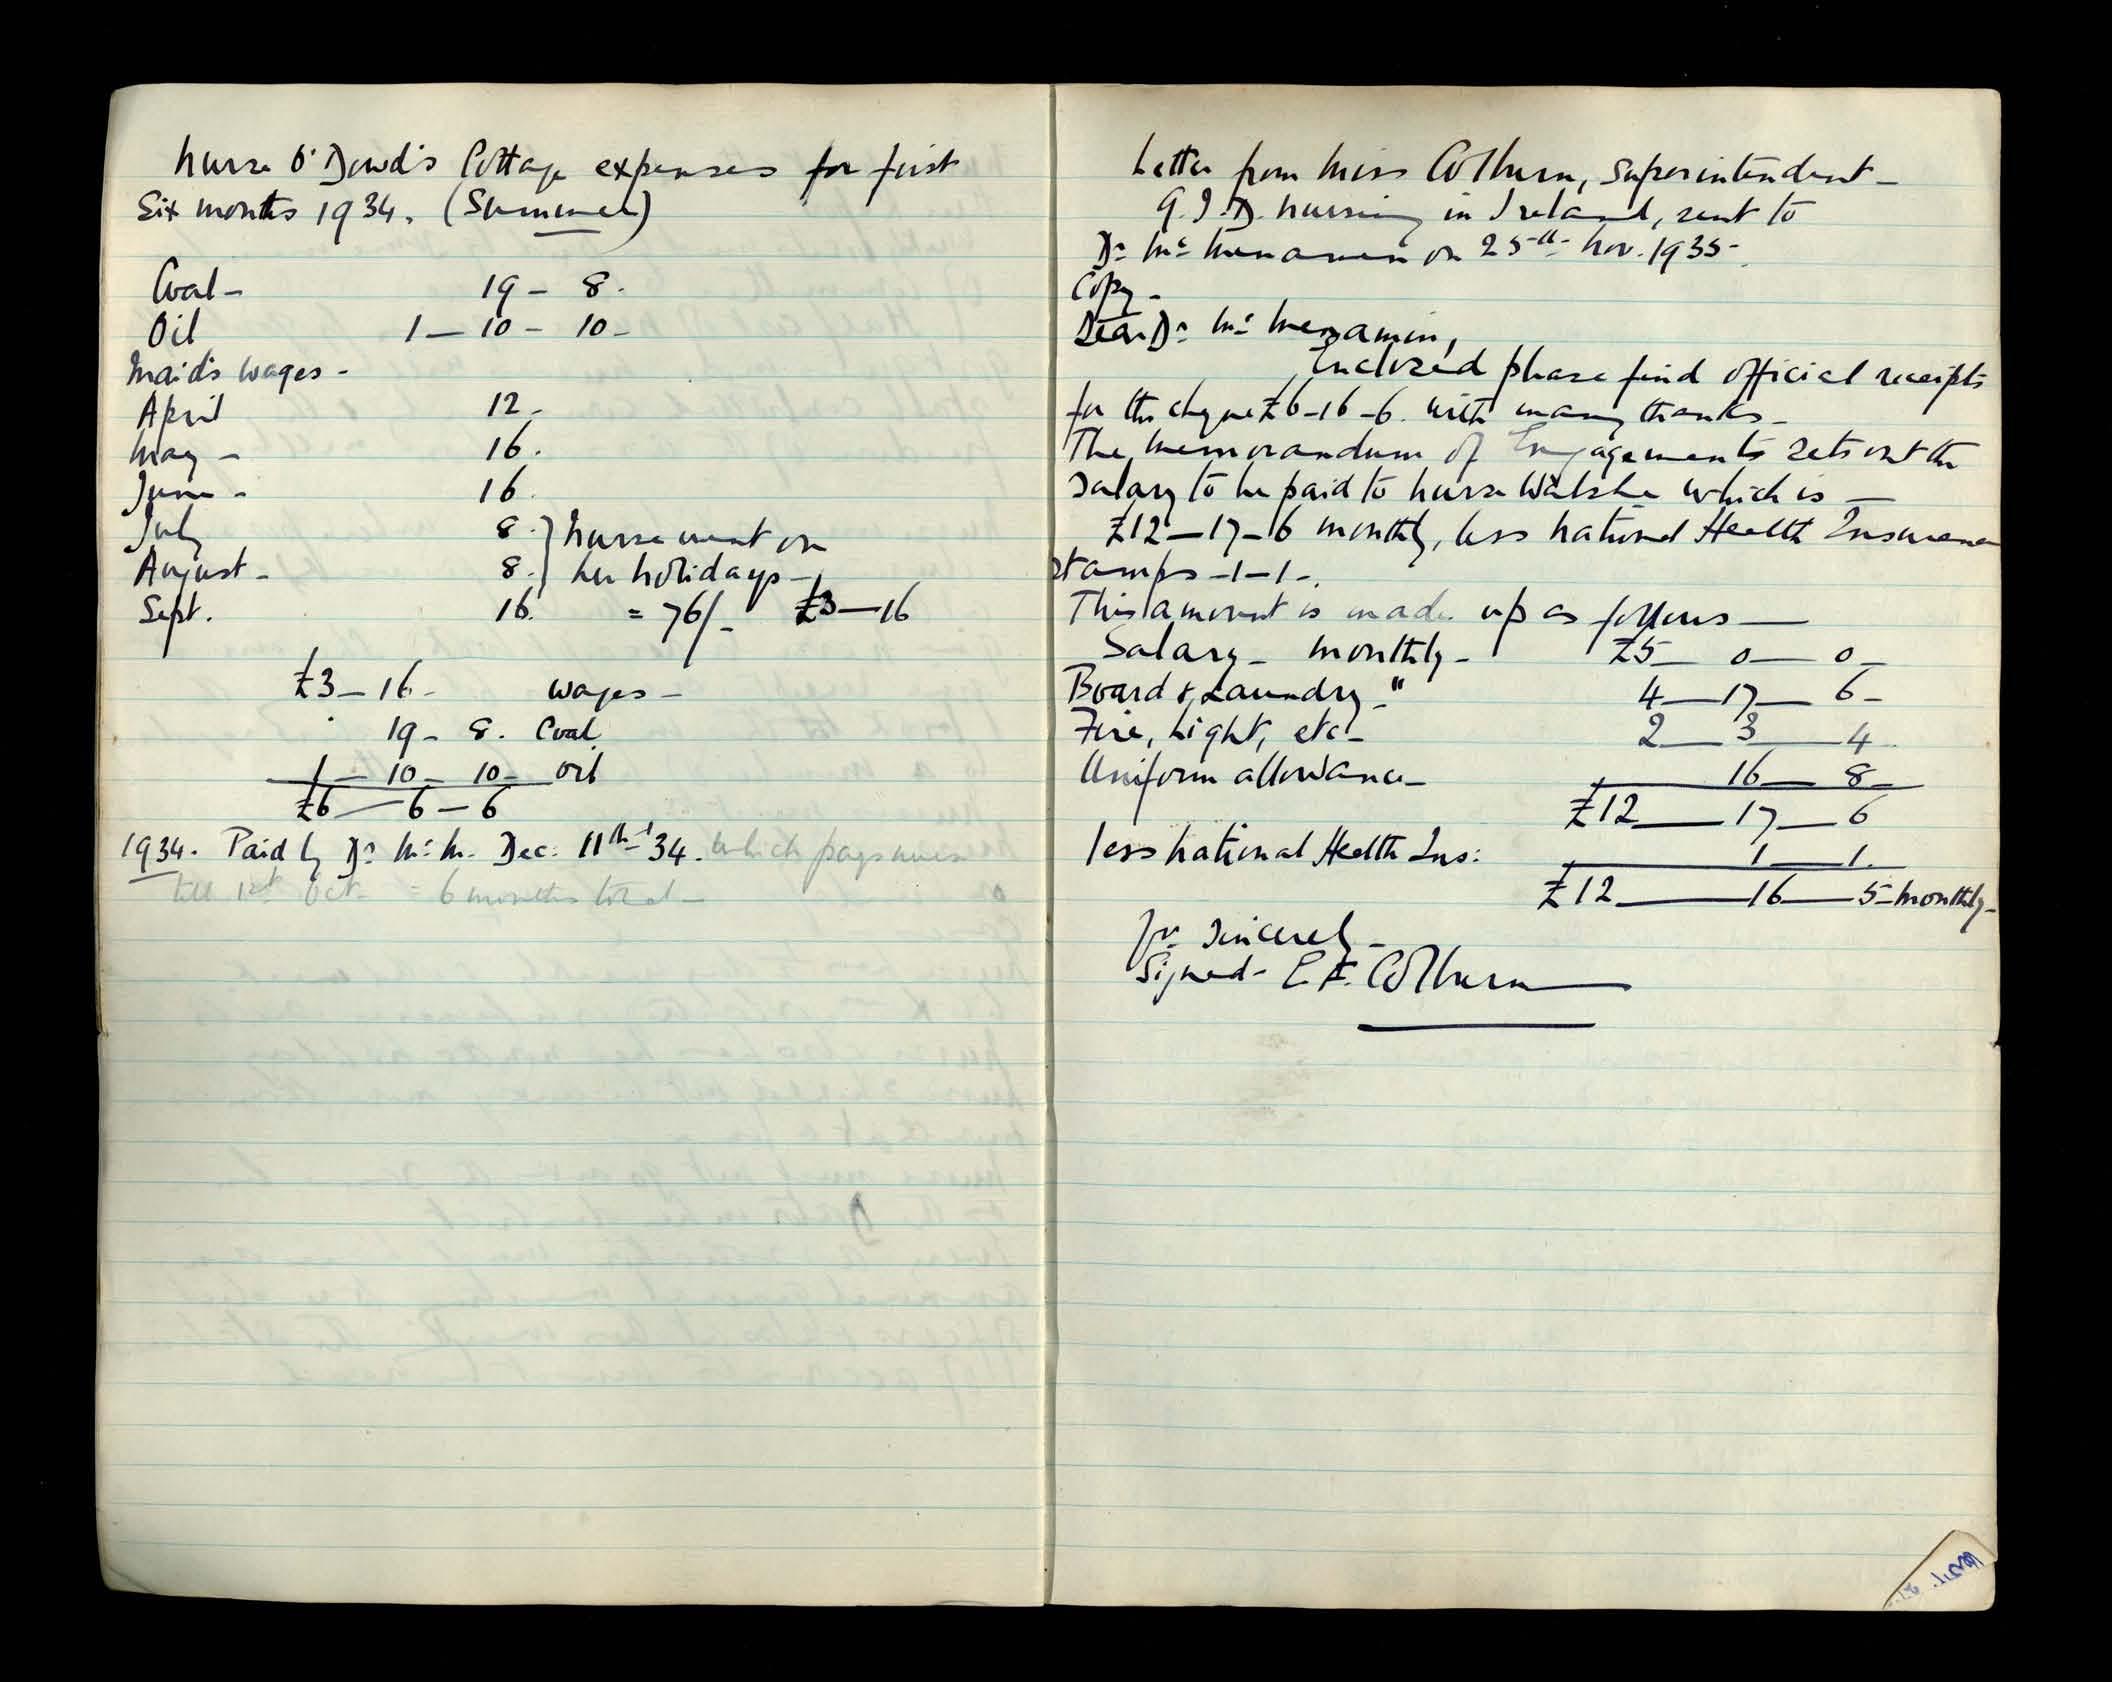 Nurse O'Dowd's Cottage expenses for first
Six months 1934. (Summer)
Coal - 19 - 8.
Oil 1 - 10 - 10 -
Maid's wages -
April 12 -
May - 16.
June - 16.
July 8. } Nurse went on
August - 8. } her holidays -
Sept. 16. = 76/- £3 - 16
£3 - 16 - wages -
19 - 8. Coal
1 - 10 - 10 - oil
£6 - 6 - 6
1934. Paid by Dr. McM. Dec. 11th '34. which pays nurse
till 1st Oct - = 6 months total -
Letter from Miss Colburn, Superintendent -
Q.I.D. Nursing in Ireland, sent to
Dr. McMenamin on 25th Nov. 1935 -
Copy -
Dear Dr. McMenamin,
Enclosed please find official receipts
for the cheque £6 - 16 - 6. with many thanks -
The memorandum of Engagements sets out the
Salary to be paid to Nurse Walshe which is -
£12 - 17 - 6 monthly, less National Health Insurance
stamps - 1 - 1 -.
This amount is made up as follows -
Salary - monthly - £5 - 0 - 0 -
Board & Laundry - " 4 - 17 - 6 -
Fire, Light, etc - 2 - 3 - 4
Uniform allowance - 16 - 8 -
£12 - 17 - 6
less National Health Ins: 1 - 1.
£12 - 16 - 5 - monthly -
Yrs. Sincerely -
Signed - E.F. Colburn